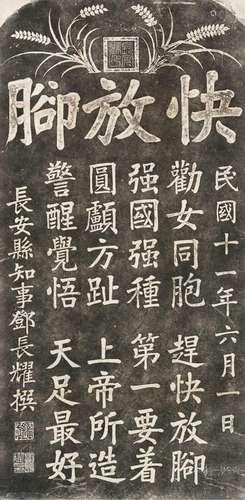 快放腳
民國十一年六月一日
勸女同胞 趕快放腳
强國强種 第一要着
圓顱方趾 上帝所造
警醒覺悟 天足最好
長安縣知事鄧長耀撰